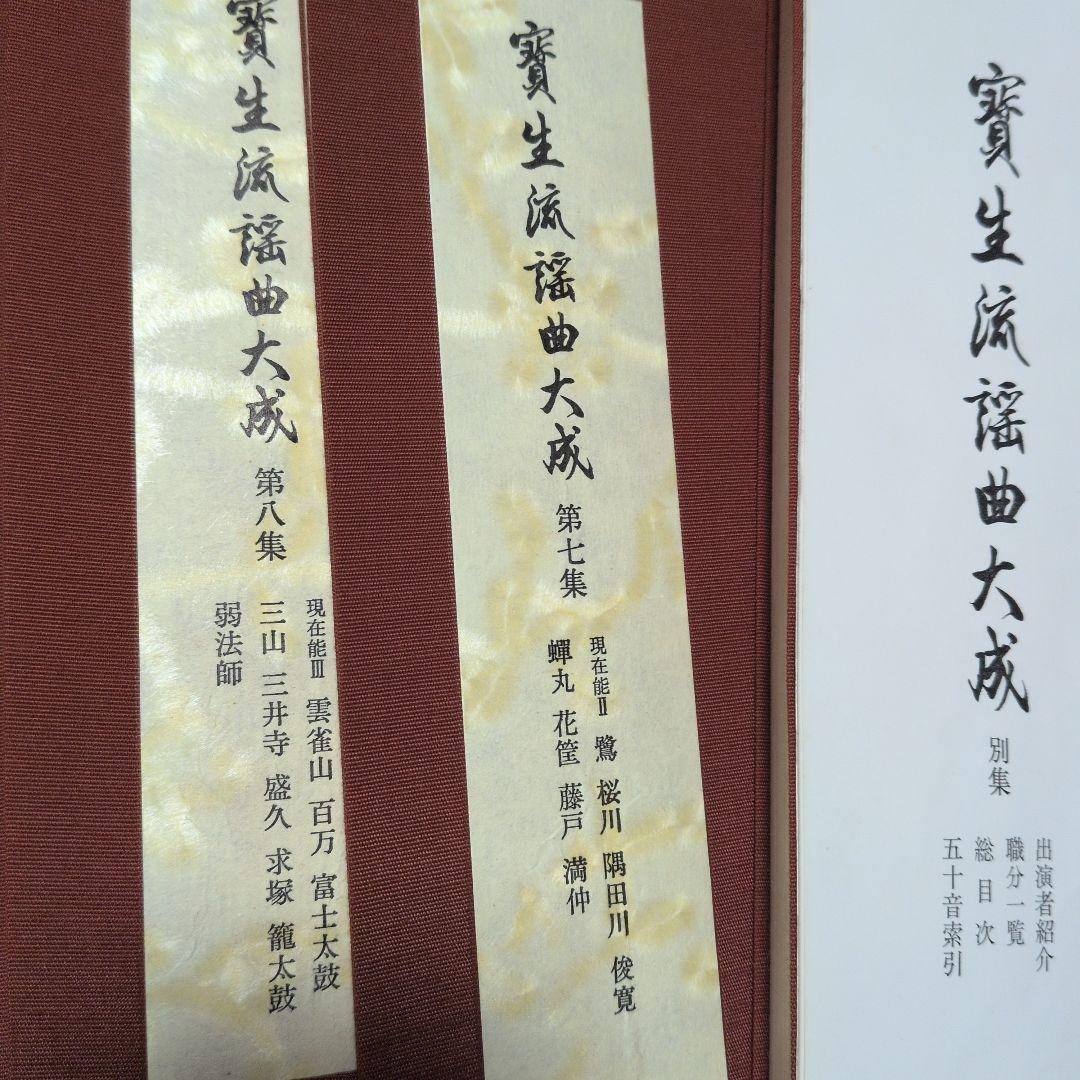 寳生流謡曲大成 別集
出演者紹介
職分一覧
総目次
五十音索引
寳生流謡曲大成 第七集
現在能Ⅱ 鷺 桜川 隅田川 俊寛
蟬丸 花筐 藤戸 満仲
寳生流謡曲大成 第八集
現在能Ⅲ 雲雀山 百万 富士太鼓
三山 三井寺 盛久 求塚 籠太鼓
弱法師